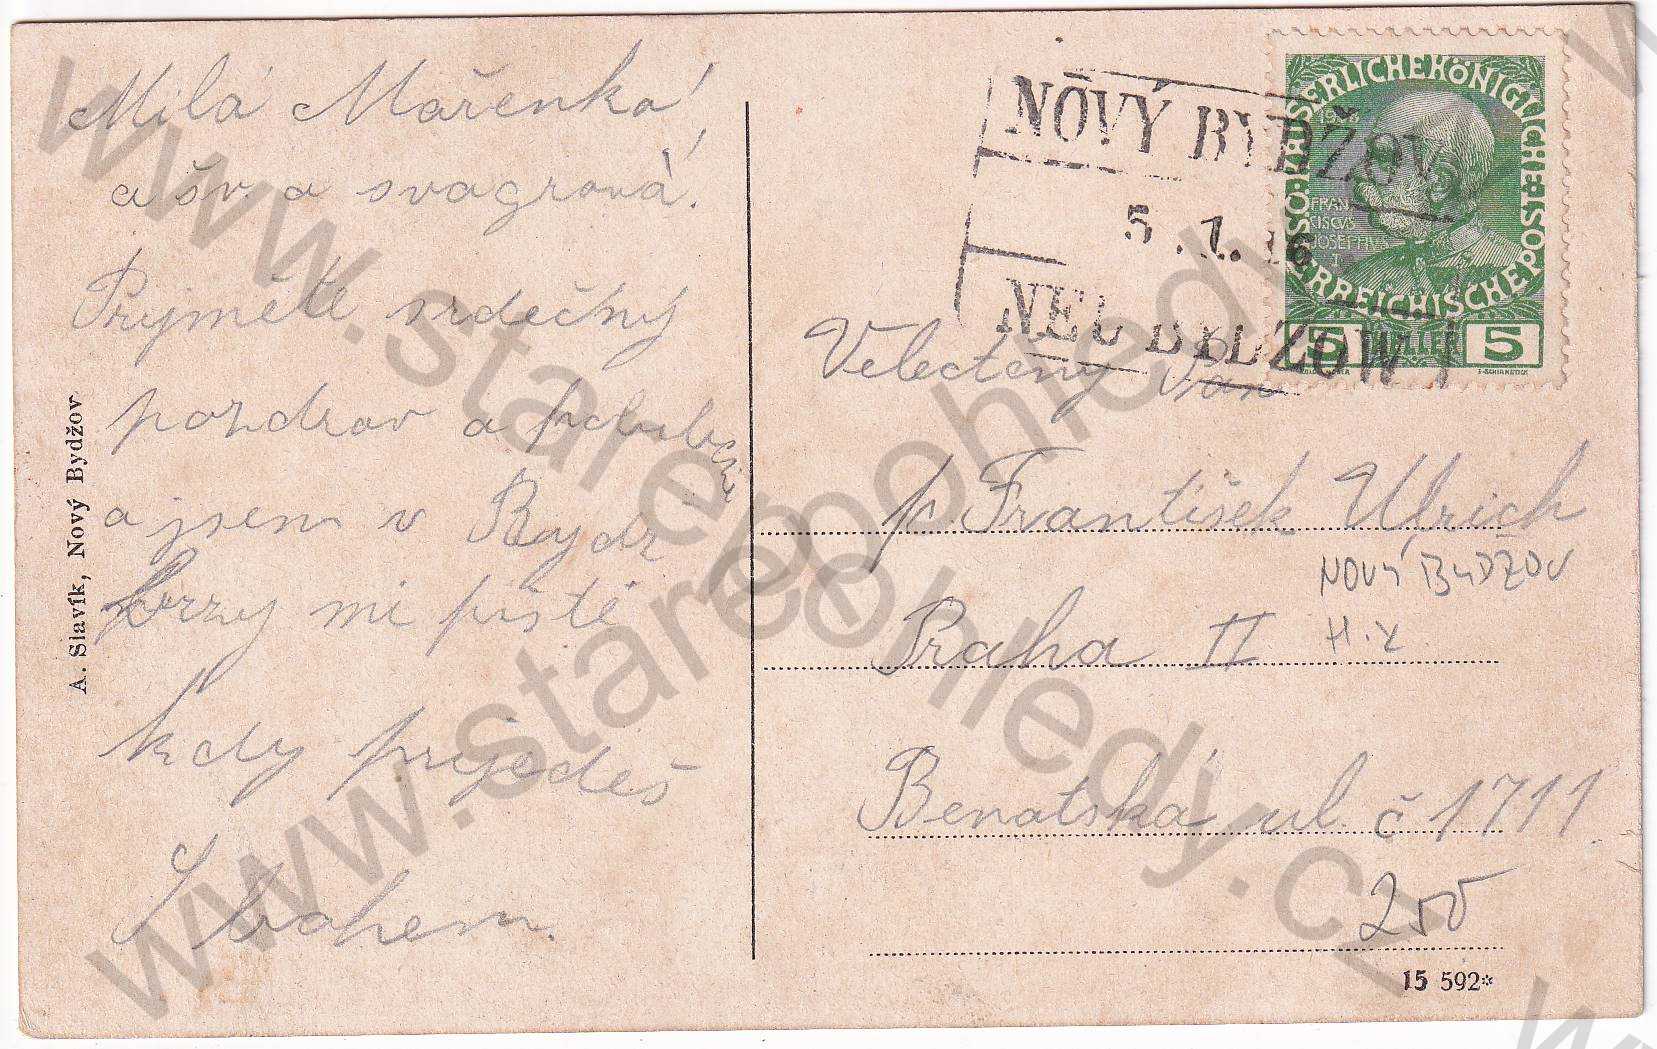 Milá Mařenko!
a šv. a svagrová!
Prijměte srdečný
pozdrav a
a jsem v Bydž
brzy mi piště
kdy prijedeš
S bohem.
A. Slavík, Nový Bydžov
NOVÝ BYDŽOV
5.1.16
NEU BYDZOW
KAISERLICHEKÖNIGLICHE ÖSTERREICHISCHE POST
FRAN
CISCVS
JOSEPHVS
I
5 HELLER 5
Velectěný Pan
p. František Ulrich
Praha II
Benatská ul. č 1711
NOVÝ BYDŽOV
H.K
250
15 592*
www.starepohledy.cz
www.starepohledy.cz